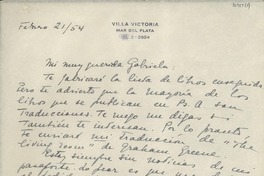 VILLA VICTORIA
MAR DEL PLATA
Febrero 21/54
Mi muy querida Gabriela:
Te fabricaré la lista de libros enseguida
Pero te advierto que la mayoría de los
libros que se publican en Bs. A son
traducciones. Te ruego me digas si
también te interesan. Por lo pronto
te enviaré mi traducción de "The
living room" de Graham Greene.
Estoy siempre sin noticias de mi
pasaporte. Lo peor es que